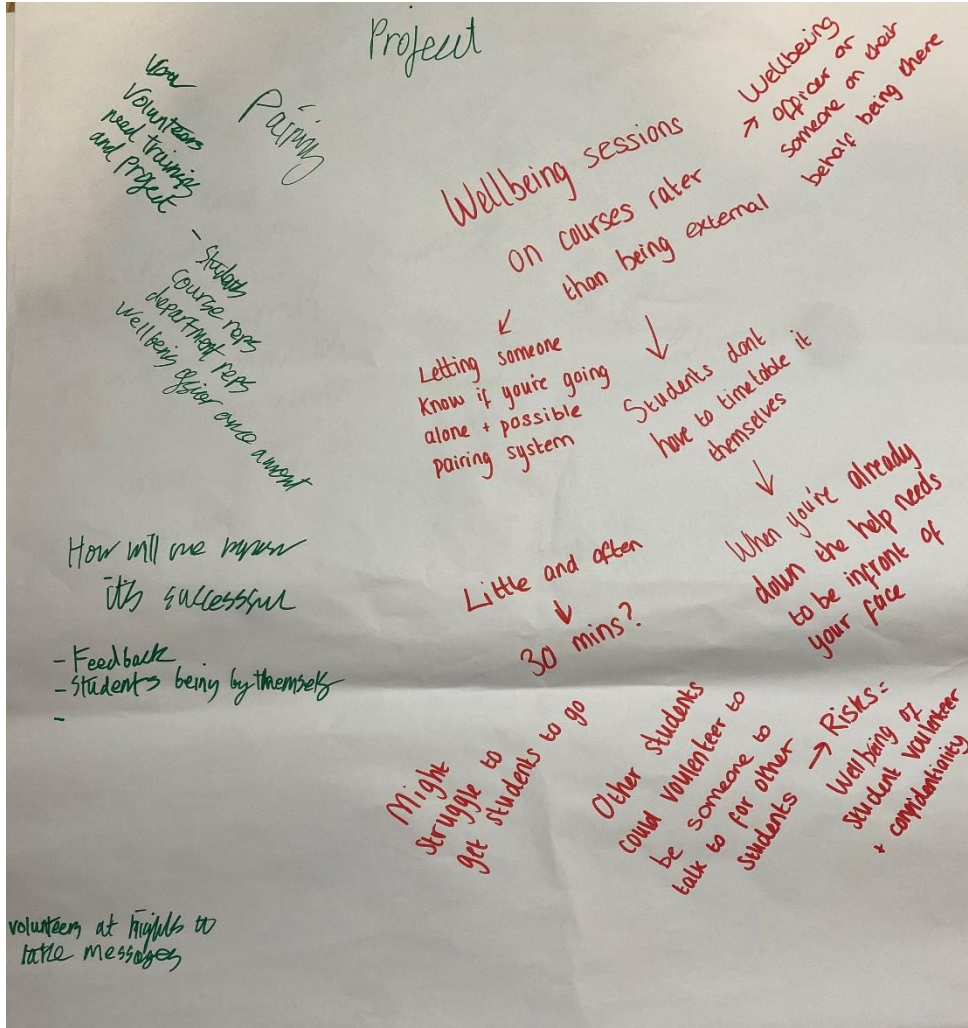 Project
Pairing
Volunteers
need training
and Project
- Students
course reps
department reps
wellbeing
How will we
it's successful
- Feedback
- Students being by themself
-
volunteers at nights to
take messages
Wellbeing sessions
on courses rater
than being external
Wellbeing
→ officer or
someone on their
behalf being there
↙
Letting someone
know if you're going
alone + possible
pairing system
↓
Students dont
have to timetable it
themselves
↓
When you're already
down the help needs
to be infront of
your face
Little and often
↓
30 mins?
Might
struggle to
get students to go
Other students
could voulenteer to
be someone to
talk to for other
students
→ Risks =
Wellbeing of
student voulenteer
+ confidentiality